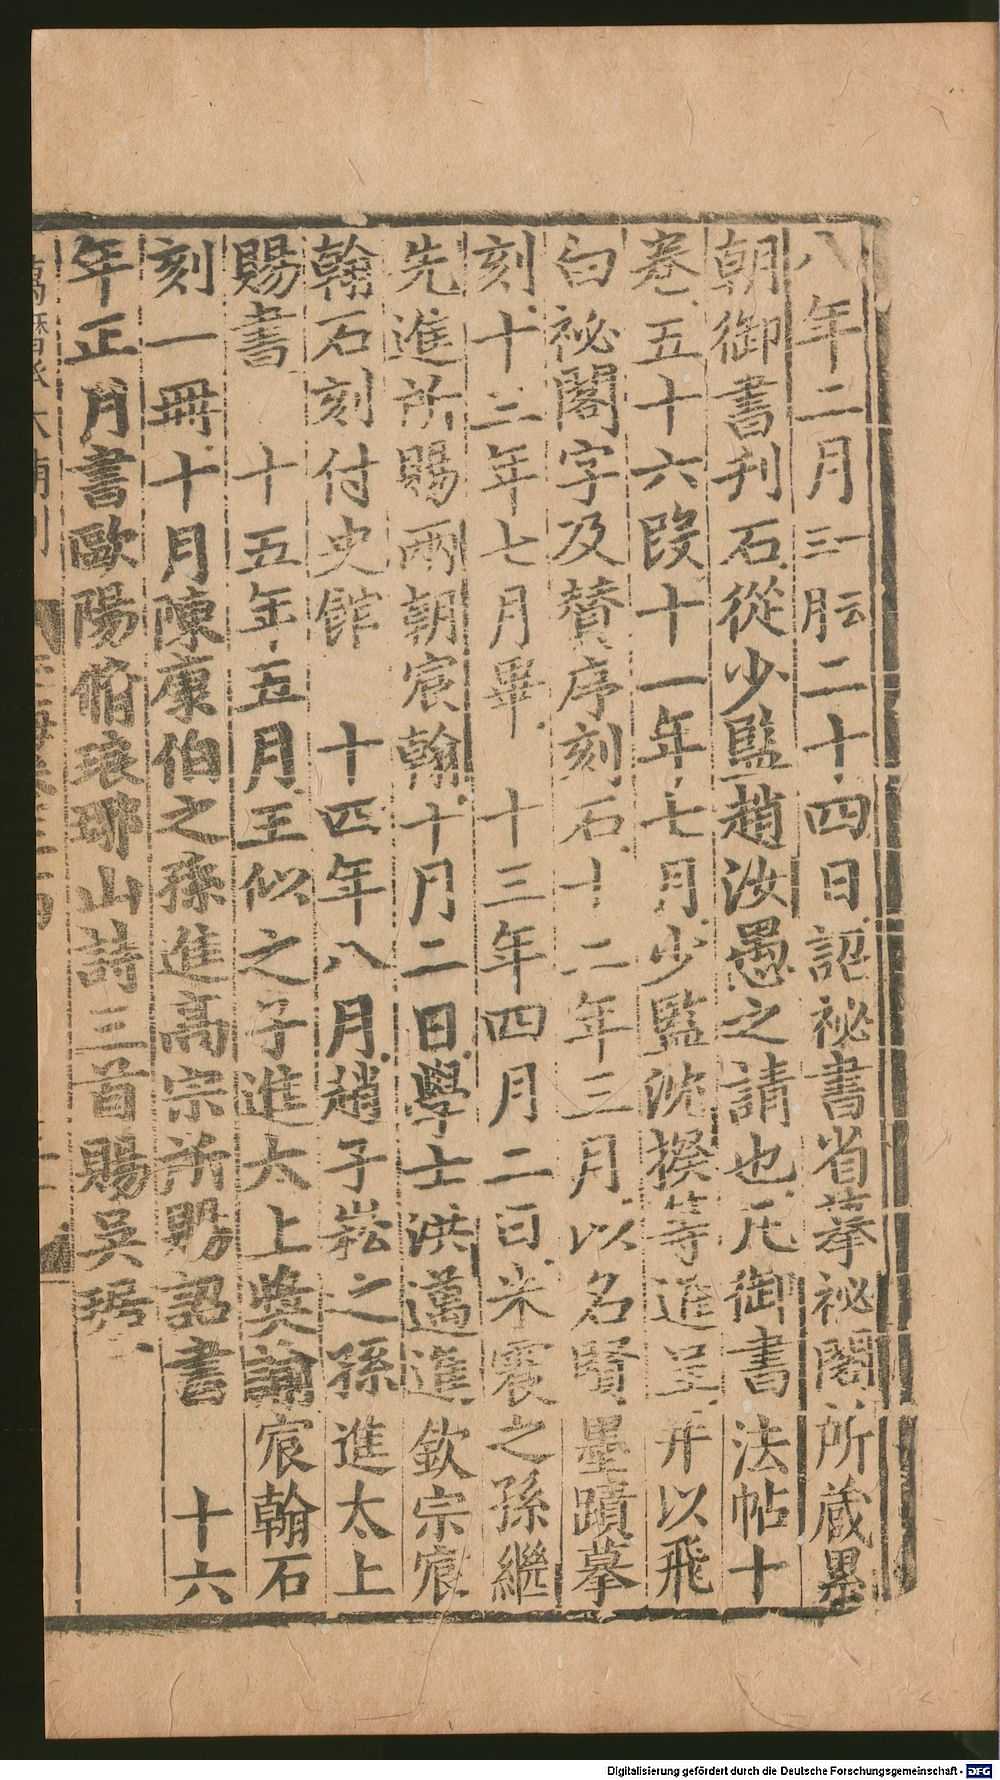 八年二月二十四日詔祕書省摹祕閣所蔵累
朝御書刋石從少監趙汝愚之請也凡御書法帖十
卷五十六段十一年七月少監沈揆等進呈并以飛
白祕閣字及賛序刻石十二年三月以名賢墨蹟摹
刻十二年七月畢 十三年四月二日米震之孫繼
先進所賜兩朝宸翰十月二日學士洪邁進欽宗宸
翰石刻付史館 十四年八月趙子崧之孫進太上
賜書 十五年五月王似之子進太上奬諭宸翰石
刻一冊十月陳康伯之孫進高宗所賜詔書 十六
年正月書歐陽脩琅瑘山詩三首賜吳琚
Digitalisierung gefördert durch die Deutsche Forschungsgemeinschaft - DFG